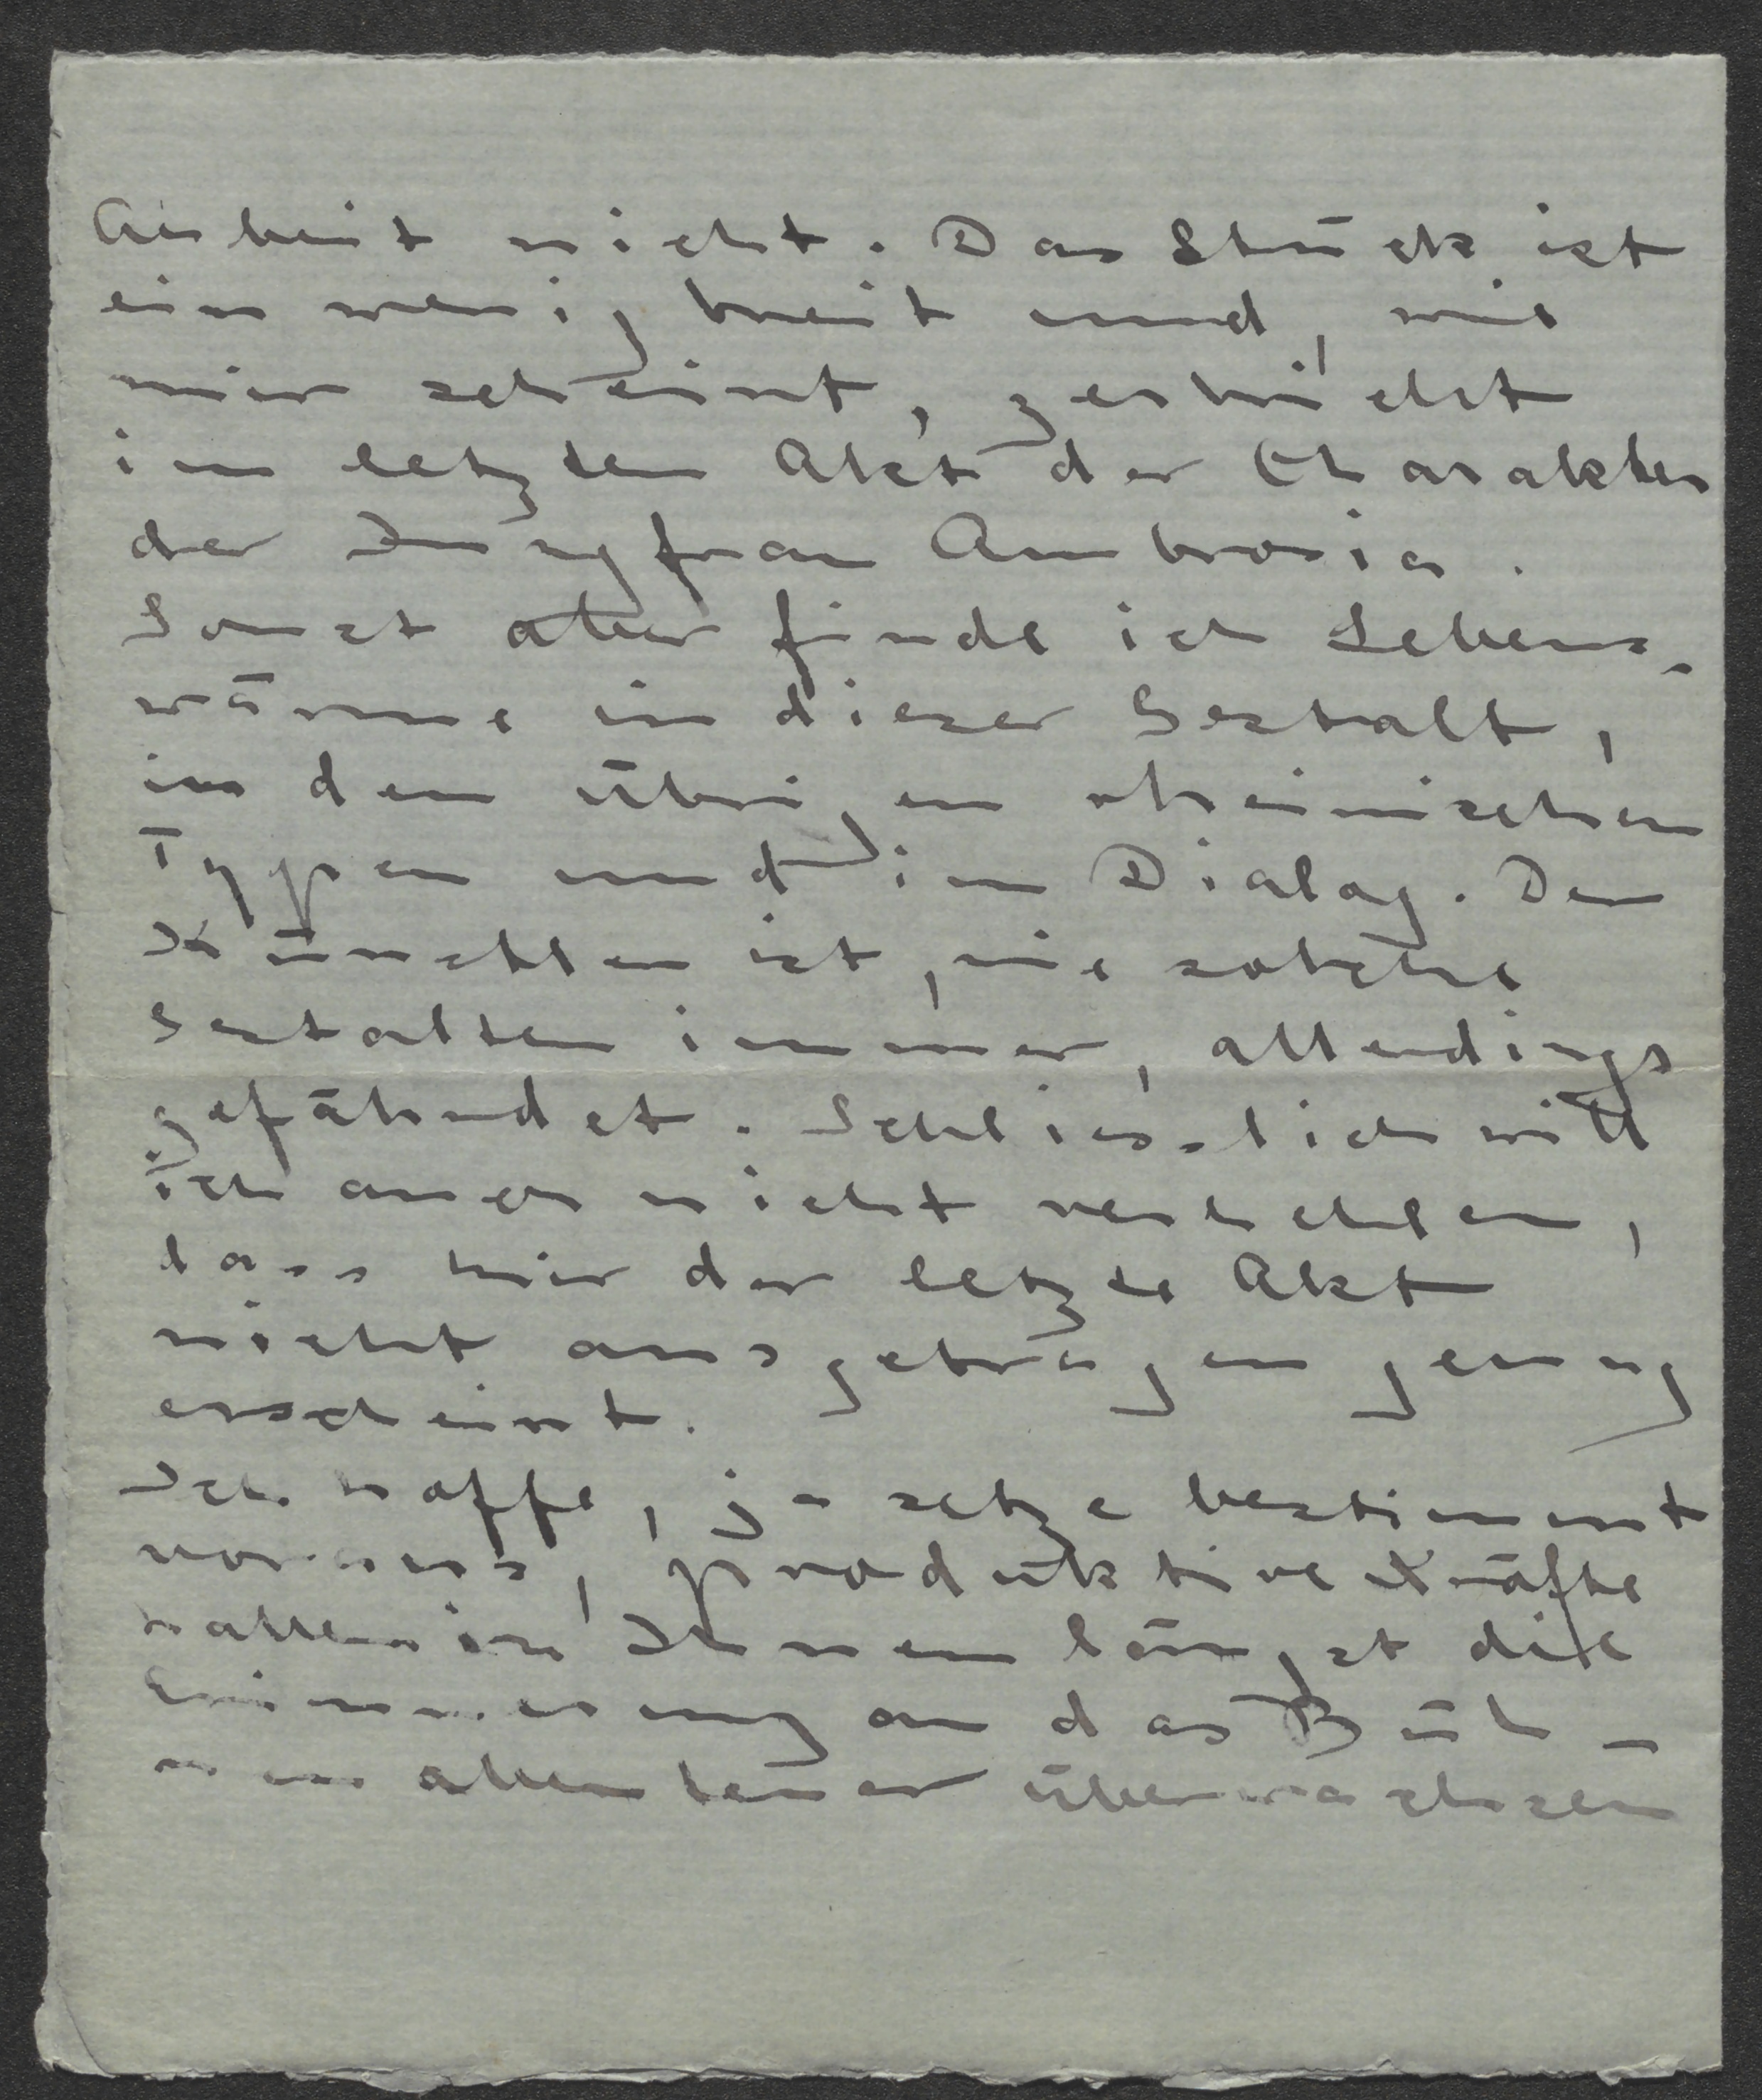 Arbeit nicht. Das Stück ist
ein wenig breit und, wie
mir scheint, zerbricht
im letzten Akt der Charakter
der Jungfrau Ambrosia.
Sonst aber finde ich Lebens-
wärme in dieser Gestalt,
in den übrigen rheinischen
Typen und im Dialog. Der
Künstler ist, wie solche
Gestalten immer, allerdings
gefährdet. Schliesslich will
ich auch nicht verhehlen,
dass mir der letzte Akt
nicht ausgetragen genug
erscheint.
Ich hoffe, ja setze bestimmt
voraus, produktive Kräfte
haben in Ihnen längst die
Erinnerung an das Büh-
nenabenteuer überwachsen